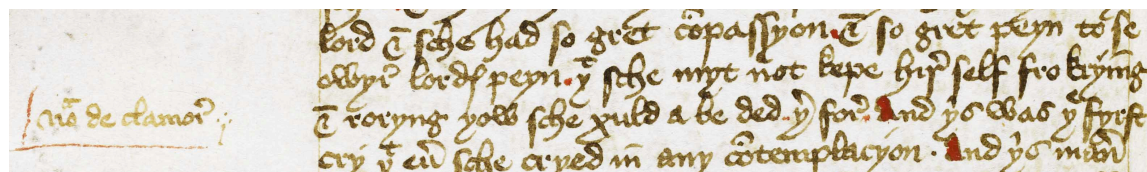 lord & sche had so gret cõpassyon. & so gret peyn to se
owyr lordys peyn. þͭ sche myt not kepe hir self fro krying
nõ de clamor
& roryng þow sche xuld a be ded. þer for. And þs was þe fyrst
cry þͭ euer sche cryed in any cõtemplacyon. And þs maner